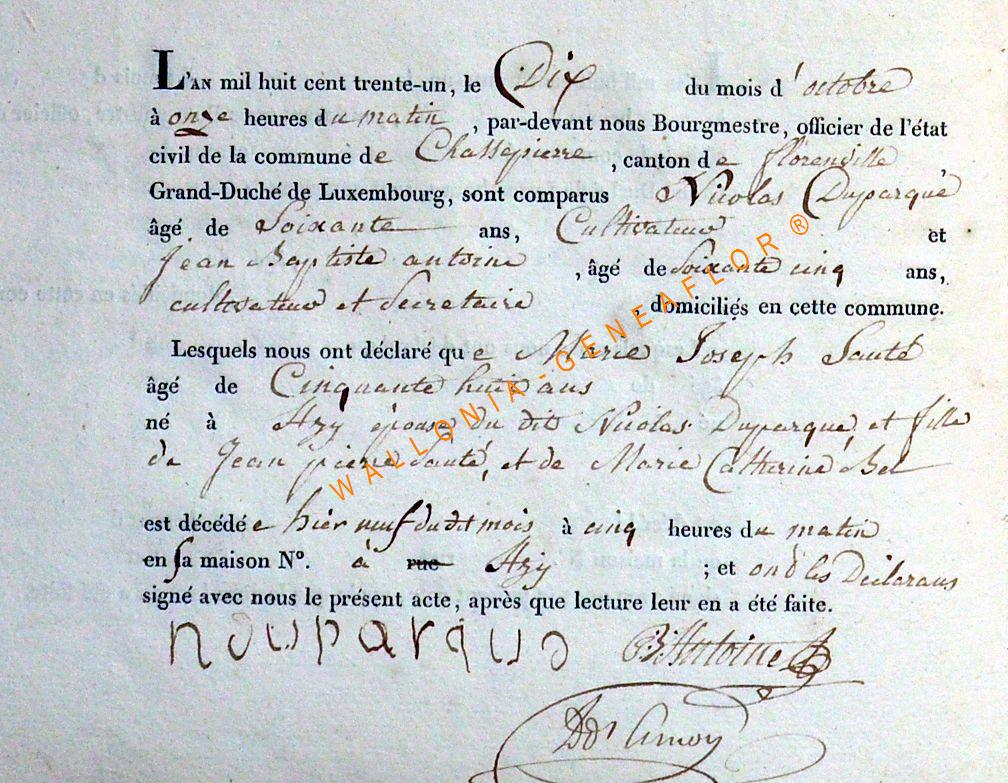 L'AN mil huit cent trente-un, le Dix du mois d'octobre
à onze heures du matin, par-devant nous Bourgmestre, officier de l'état
civil de la commune de Chassepierre, canton de florenville,
Grand-Duché de Luxembourg, sont comparus Nicolas Duparque
âgé de Soixante ans, Cultivateur et
Jean Baptiste antoine, âgé de Soixante cinq ans,
cultivateur et Secretaire, domiciliés en cette commune.
Lesquels nous ont déclaré que Marie Joseph Santé
âgé de Cinquante huit ans
né à Azy épouse du dit Nicolas Duparque, et fille
de Jean pierre Santé, et de Marie Catherine Bel
est décédée hier neuf du dit mois à cinq heures du matin
en sa maison N°. à rue Azy ; et ont les Déclarans
signé avec nous le présent acte, après que lecture leur en a été faite.
nduparque JBAntoine
WALLONIA-GENEAFLOR ®